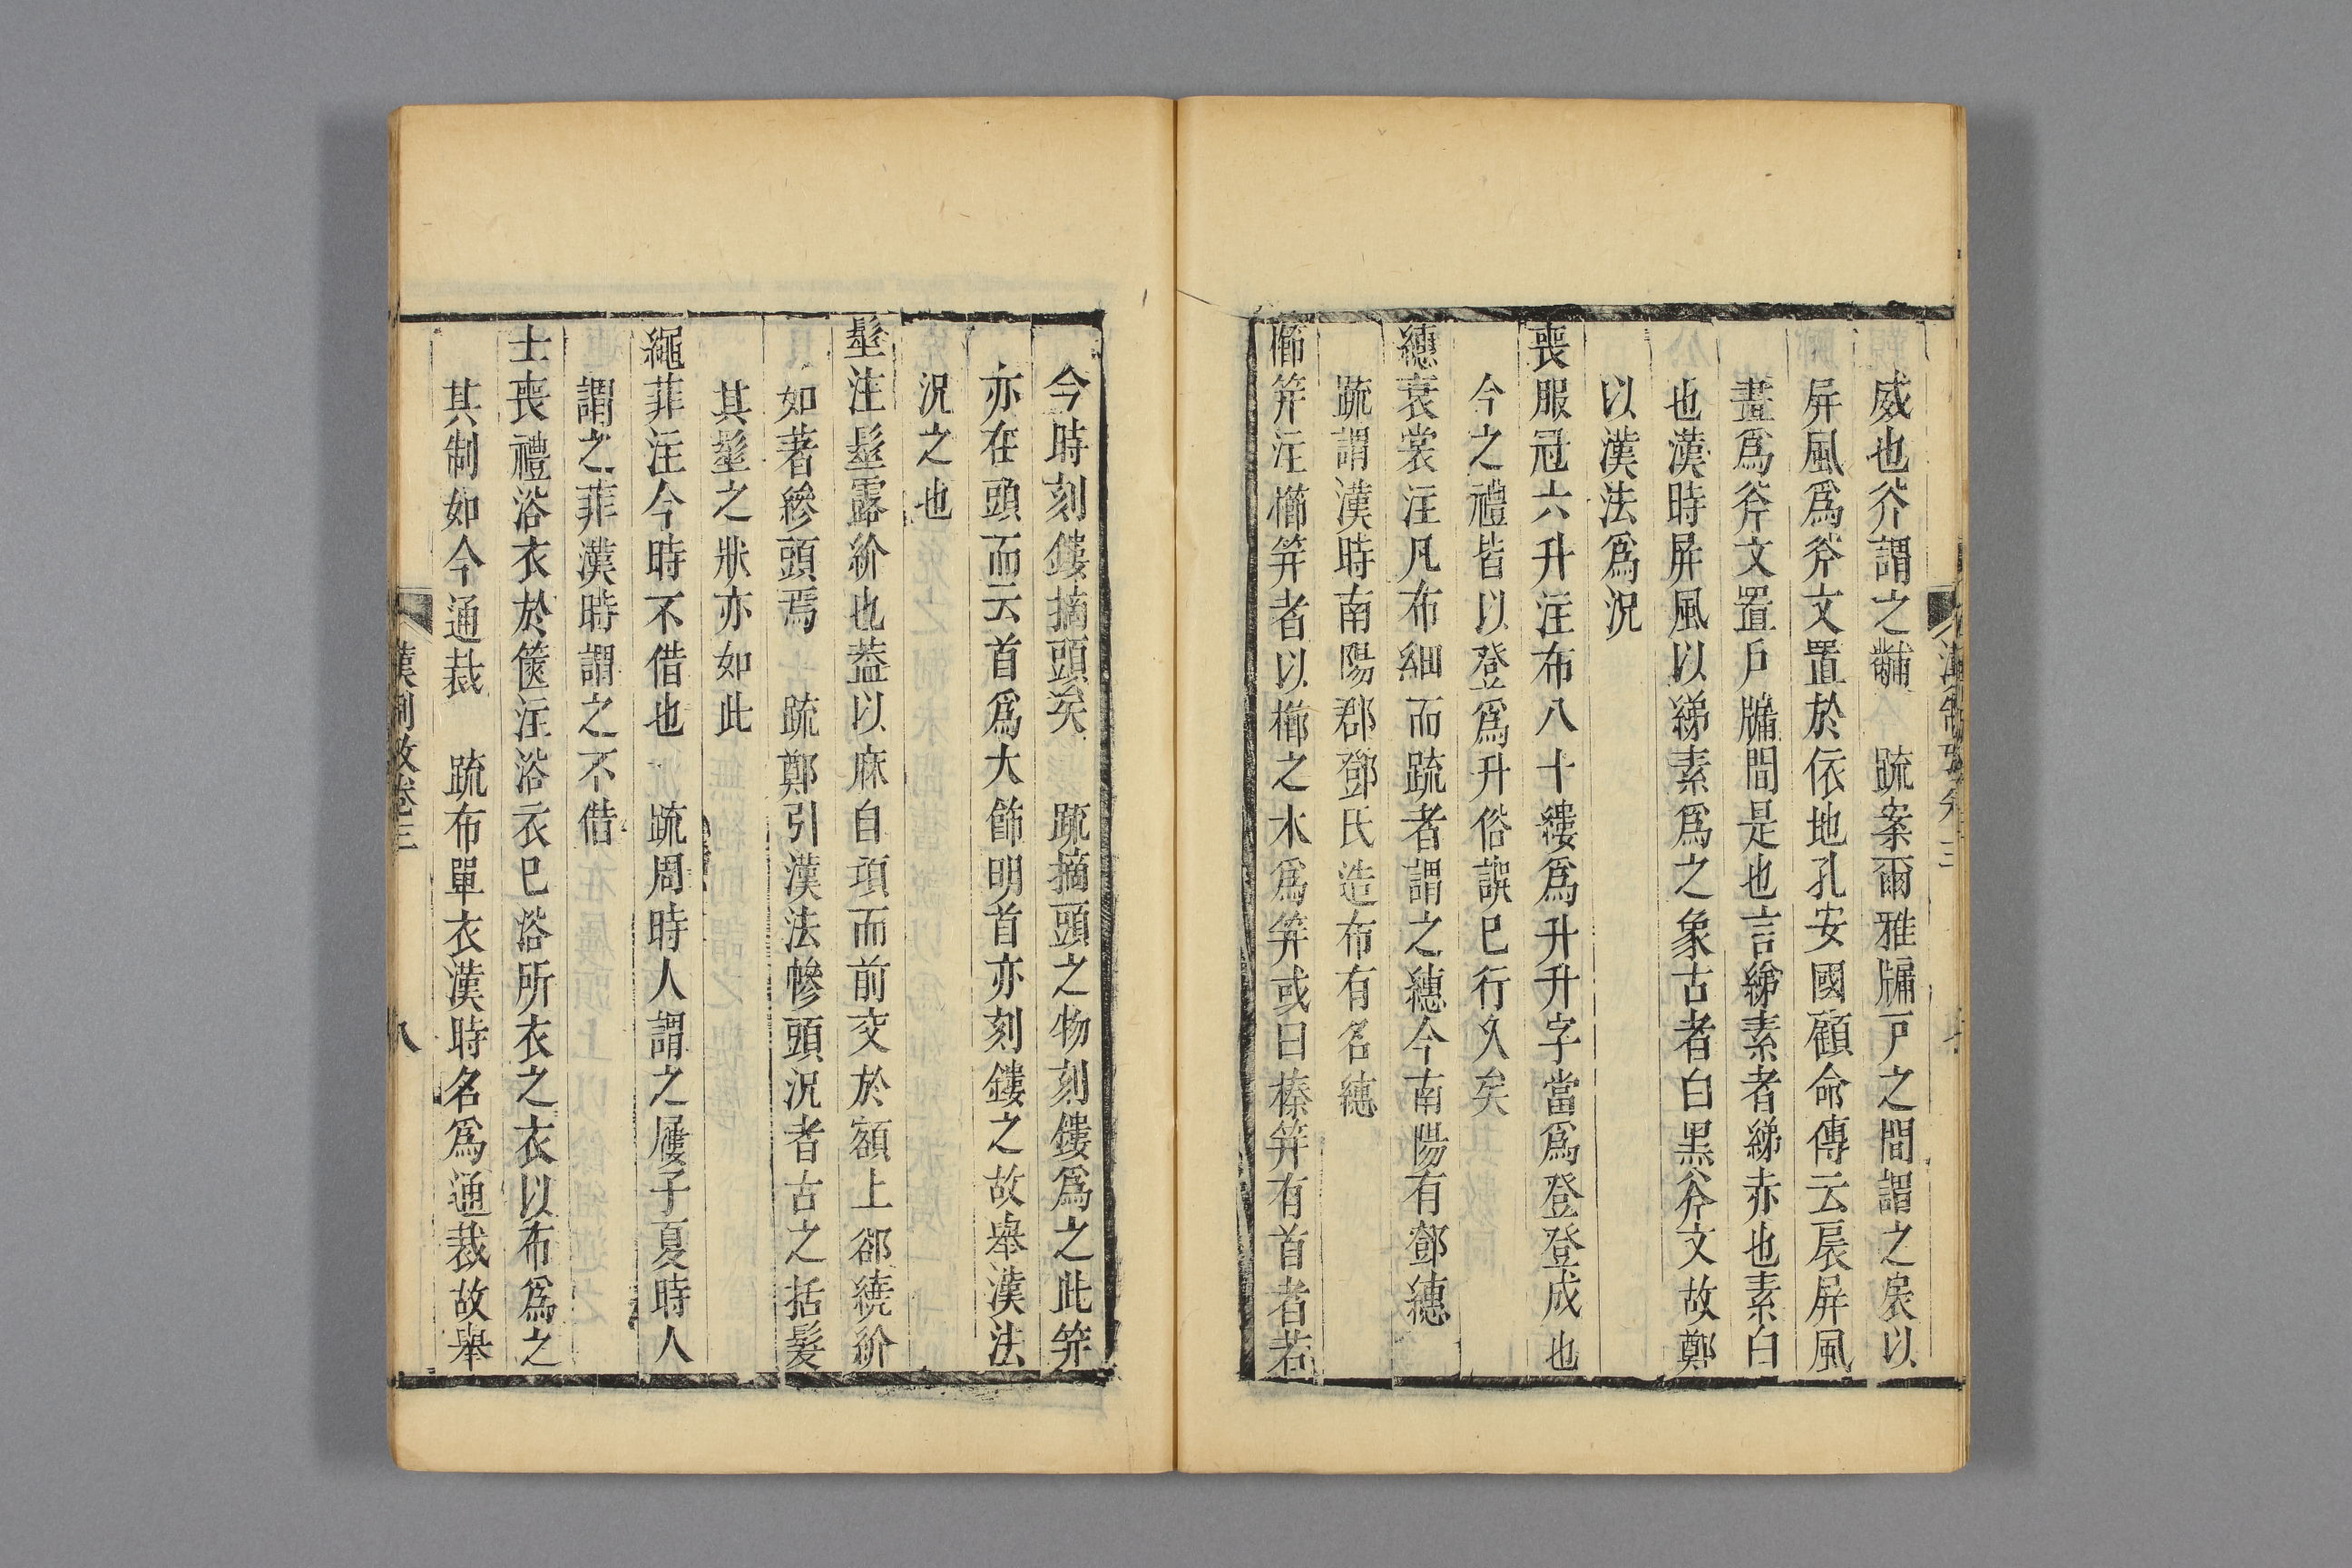 威也斧謂之黼 疏案爾雅牖戸之間謂之扆以
屏風爲斧文置於依地孔安國顧命傳云扆屏風
畫爲斧文置戸牖間是也言綈素者綈赤也素白
也漢時屏風以綈素爲之象古者白黑斧文故鄭
以漢法爲況
喪服冠六升注布八十縷爲升升字當爲登登成也
今之禮皆以登爲升俗誤已行久矣
繐衰裳注凡布細而疏者謂之繐今南陽有鄧繐
疏謂漢時南陽郡鄧氏造布有名繐
櫛笄注櫛笄者以櫛之木爲笄或曰榛笄有首者若
今時刻鏤摘頭矣 疏摘頭之物刻鏤爲之此笄
亦在頭而云首爲大飾明首亦刻鏤之故舉漢法
況之也
髽注髽露紒也葢以麻自項而前交於額上郤繞紒
如著縿頭焉 疏鄭引漢法幓頭況者古之括髪
其髽之狀亦如此
繩菲注今時不借也 疏周時人謂之屨子夏時人
謂之菲漢時謂之不借
士喪禮浴衣於篋注浴衣已浴所衣之衣以布爲之
其制如今通裁 疏布單衣漢時名爲通裁故舉
漢制攷卷三 八